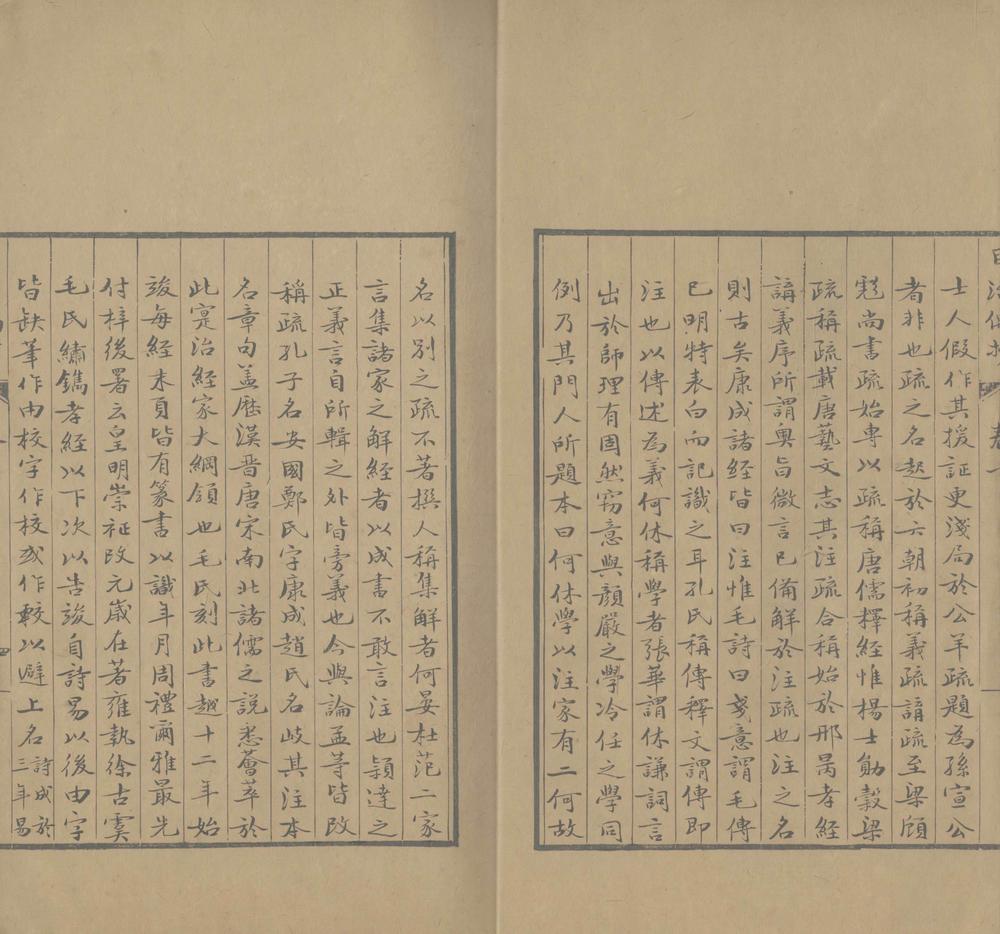 士人假作其援証更淺局於公羊疏題為孫宣公
者非也疏之名起於六朝初稱義疏講疏至梁顧
彪尚書疏始專以疏稱唐儒釋經惟楊士勛穀梁
疏稱疏載唐藝文志其注疏合稱始於邢昺孝經
講義序所謂奧旨微言已備解於注疏也注之名
則古矣康成諸經皆曰注惟毛詩曰笺意謂毛傳
已明特表白而記識之耳孔氏稱傳釋文謂傳即
注也以傳述為義何休稱學者張華謂休謙詞言
出於師理有固然窃意與顏嚴之學泠任之學同
例乃其門人所題本曰何休學以注家有二何故
名以別之疏不著撰人稱集解者何晏杜范二家
言集諸家之解經者以成書不敢言注也穎達之
正義言自所輯之外皆旁義也今與論孟等皆改
稱疏孔子名安國鄭氏字康成趙氏名岐其注本
名章句盖歷漢晋唐宋南北諸儒之說悉薈萃於
此寔治經家大綱領也毛氏刻此書越十二年始
竣每經末頁皆有篆書以識年月周禮爾雅最先
付梓後署云皇明崇禎改元歲在著雍執徐古虞
毛氏繡鐫孝經以下次以告竣自詩易以後由字
皆缺筆作由校字作挍或作較以避上名詩成於三年易